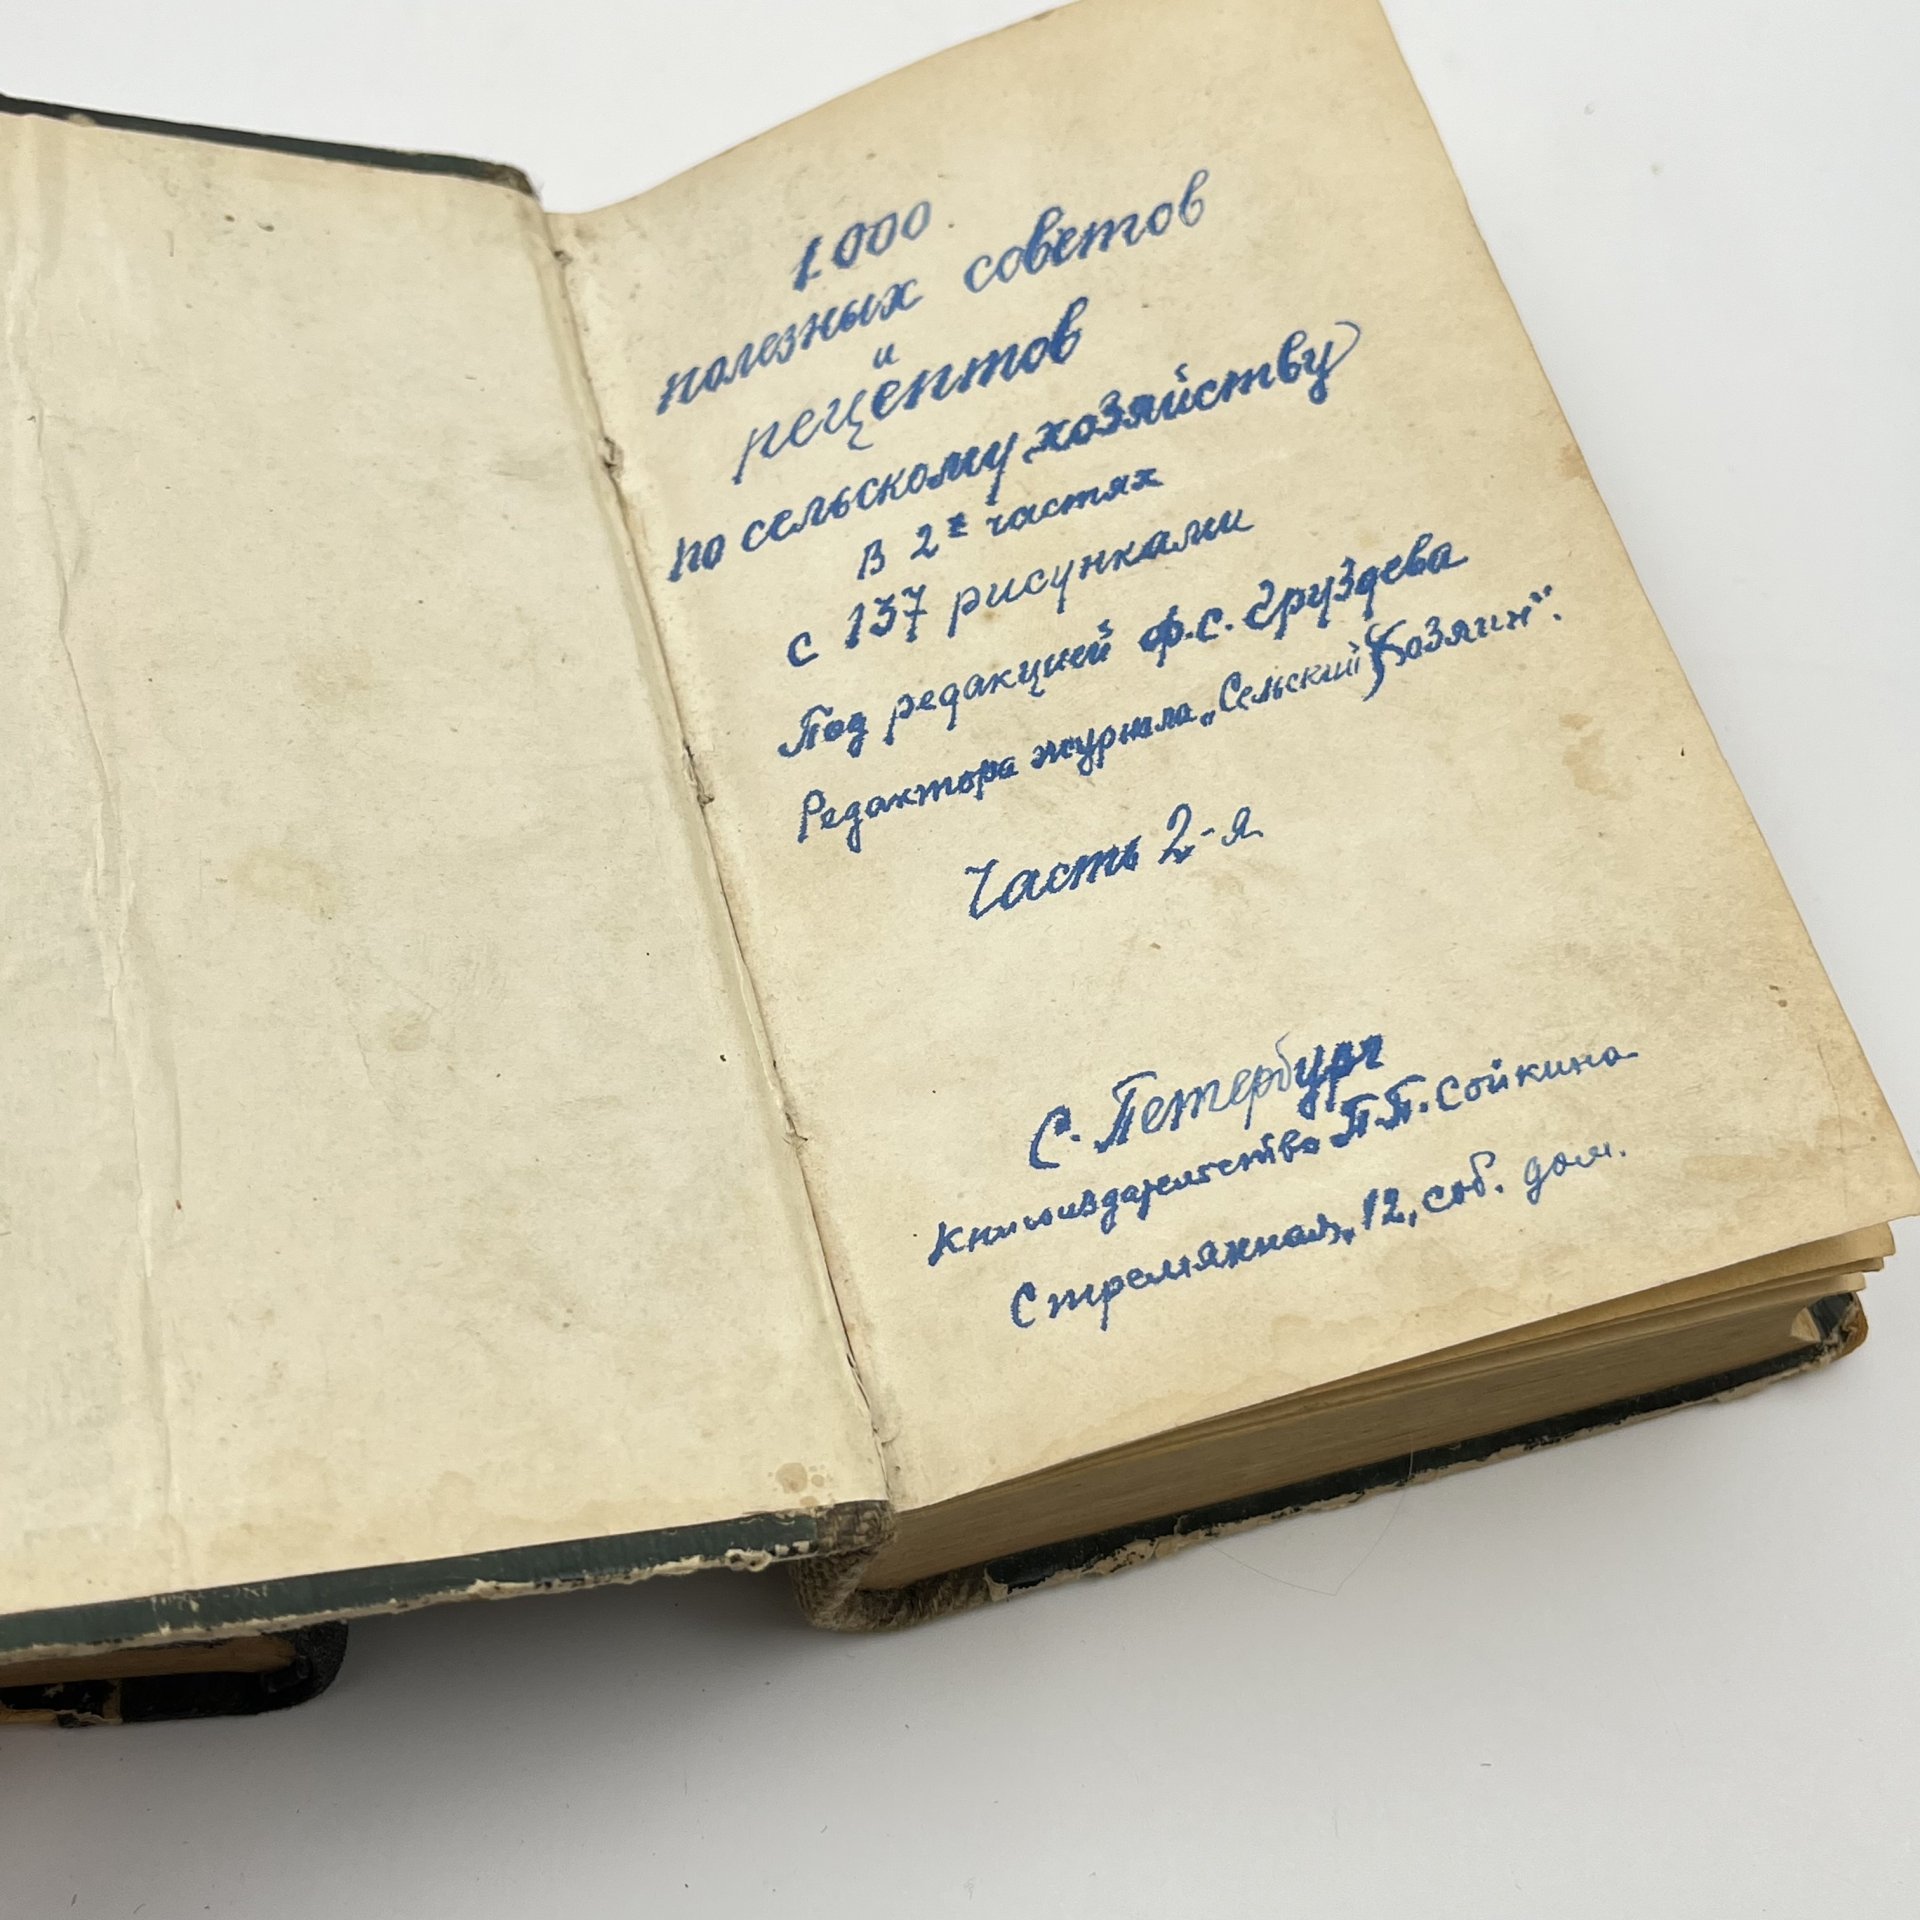 1000
полезных советов
и
рецептов
по сельскому хозяйству
в 2х частях
с 137 рисунками
Под редакцией Ф.С. Груздева
Редактора журнала „Сельский Хозяин".
Часть 2-я
С. Петербург
Книгоиздательство П.П. Сойкина
Стремянная, 12, соб. дом.